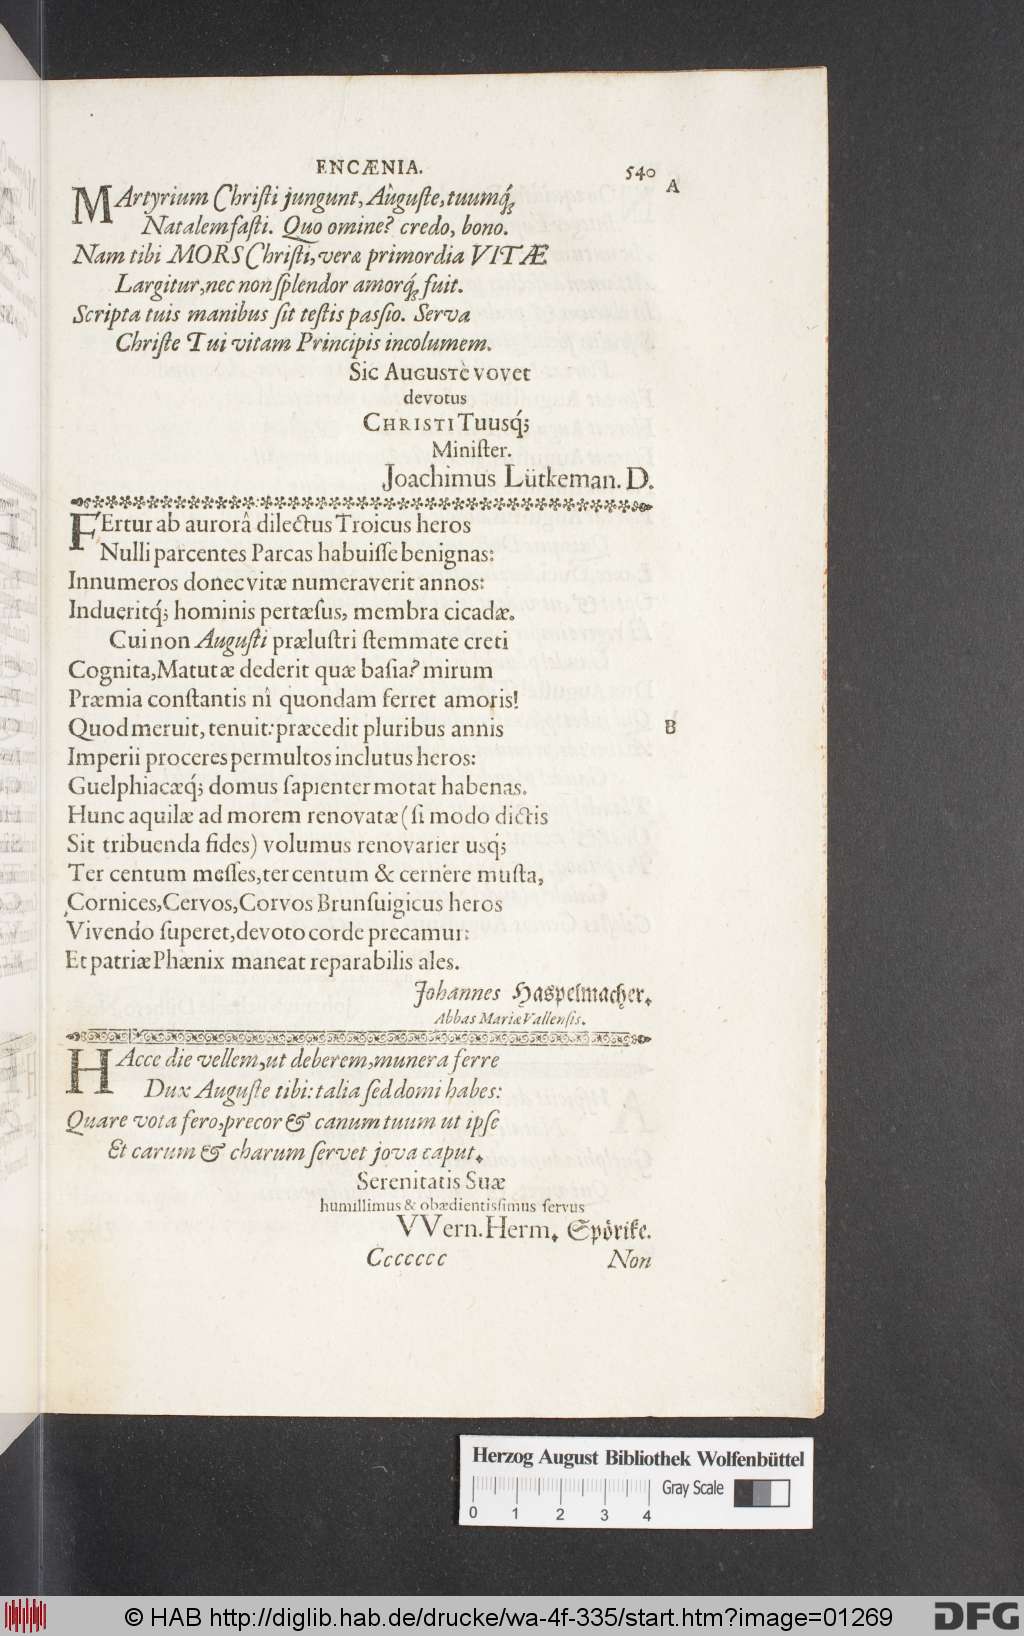 ENCÆNIA. 540
A
MArtyrium Chriſti jungunt, Auguſte, tuumq́;
Natalem faſti. Quo omine? credo, bono.
Nam tibi MORS Chriſti, veræ primordia VITÆ
Largitur, nec non ſplendor amorq́; fuit.
Scripta tuis manibus ſit teſtis paſsio. Serva
Chriſte Tui vitam Principis incolumem.
Sic AUGUSTE̊ vovet
devotus
CHRISTI Tuusq́;
Miniſter.
Joachimus Lütkeman. D.
FErtur ab aurorâ dilectus Troicus heros
Nulli parcentes Parcas habuiſſe benignas:
Innumeros donec vitæ numeraverit annos:
Indueritq́; hominis pertæſus, membra cicadæ.
Cui non Auguſti præluſtri ſtemmate creti
Cognita, Matutæ dederit quæ baſia? mirum
Præmia conſtantis nî quondam ferret amoris!
Quod meruit, tenuit: præcedit pluribus annis
B
Imperii proceres permultos inclutus heros:
Guelphiacæq́; domus ſapienter motat habenas.
Hunc aquilæ ad morem renovatæ (ſi modo dictis
Sit tribuenda fides) volumus renovarier usq́;
Ter centum meſſes, ter centum & cernere muſta,
Cornices, Cervos, Corvos Brunſuigicus heros
Vivendo ſuperet, devoto corde precamur:
Et patriæ Phænix maneat reparabilis ales.
Johannes Haspelmacher.
Abbas Mariæ Vallenſis.
HAcce die vellem, ut deberem, munera ferre
Dux Auguſte tibi: talia ſed domi habes:
Quare vota fero, precor & canum tuum ut ipſe
Et carum & charum ſervet jova caput.
Serenitatis Suæ
humillimus & obædientisſimus ſervus
VVern. Herm. Spörike.
Ccccccc Non
Herzog August Bibliothek Wolfenbüttel
Gray Scale
0 1 2 3 4
© HAB http://diglib.hab.de/drucke/wa-4f-335/start.htm?image=01269
DFG